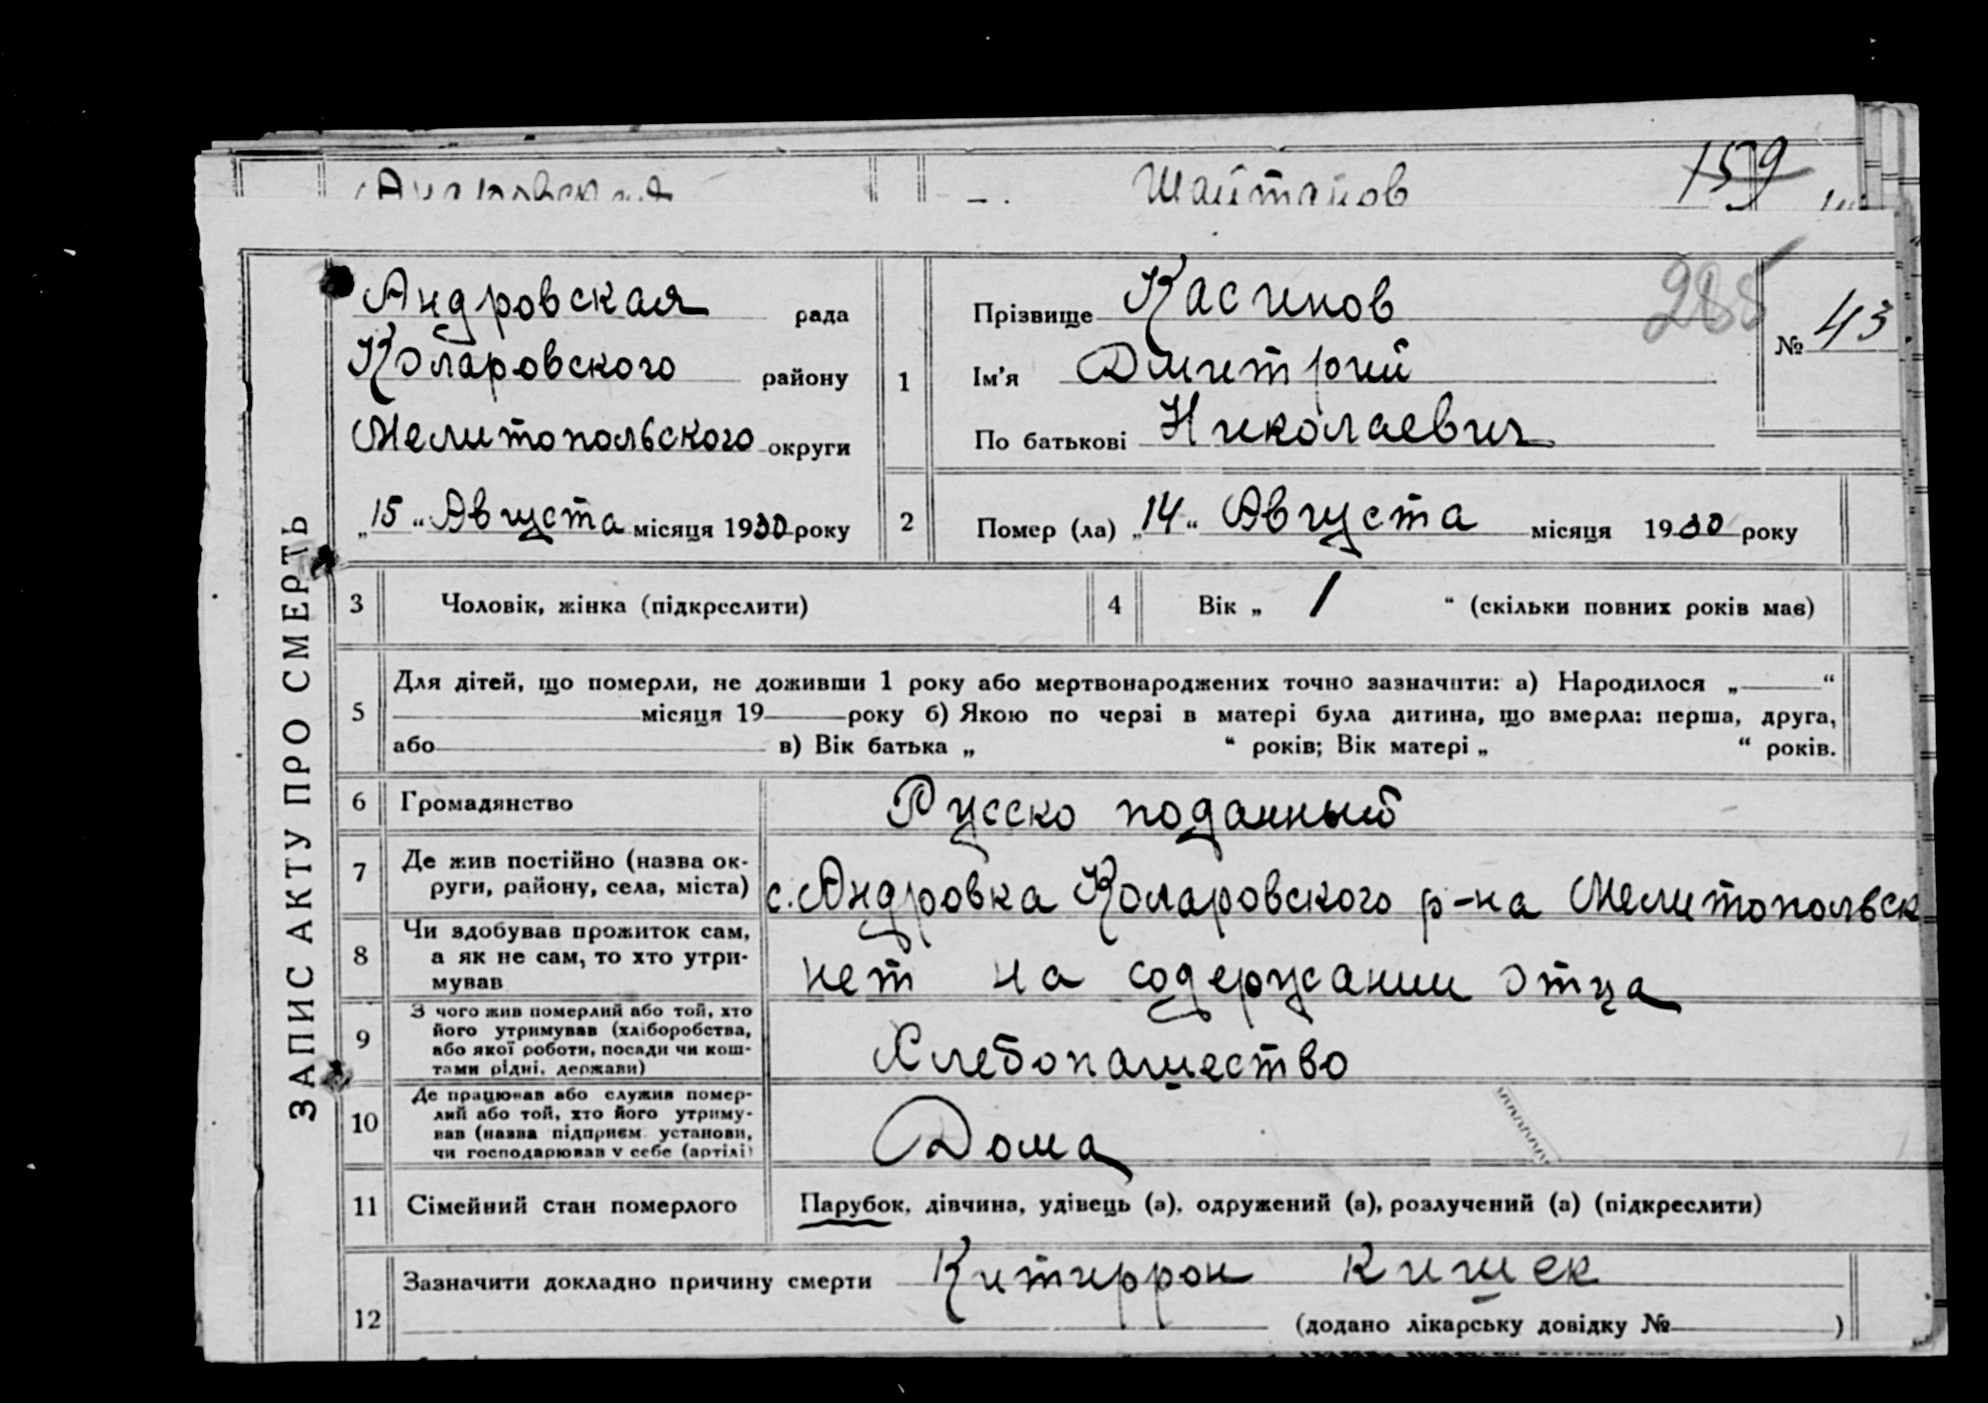 Шайтанов
159
ЗАПИС АКТУ ПРО СМЕРТЬ
Андровская рада
Коларовского району
Мелитопольского округи
„15“ Августа місяця 1930 року
1
Прізвище Касинов
Ім’я Дмитрий
По батькові Николаевич
288
№ 43
2
Помер (ла) „14“ Августа місяця 1930 року
3 Чоловік, жінка (підкреслити)
4 Вік „ 1 “ (скільки повних років має)
5 Для дітей, що померли, не доживши 1 року або мертвонароджених точно зазначити: а) Народилося „ “
місяця 19 року б) Якою по черзі в матері була дитина, що вмерла: перша, друга,
або в) Вік батька „ “ років; Вік матері „ “ років.
6 Громадянство Русско поданный
7 Де жив постійно (назва ок-
руги, району, села, міста) с. Андровка Коларовского р-на Мелитопольск
8 Чи здобував прожиток сам,
а як не сам, то хто утри-
мував нет на содержании отца
9 З чого жив померлий або той, хто
його утримував (хліборобства,
або якої роботи, посади чи кош-
тами рідні, держави) Хлебопашество
10 Де працював або служив помер-
лий або той, хто його утриму-
вав (назва підприєм. установи,
чи господарював у себе (артілі) Дома
11 Сімейний стан померлого Парубок, дівчина, удівець (а), одружений (а), розлучений (а) (підкреслити)
12 Зазначити докладно причину смерти Китиррон кишек
(додано лікарську довідку № )